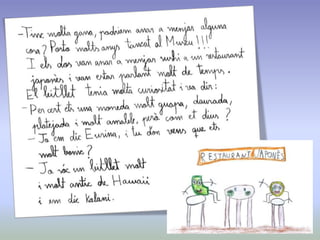 -Tinc molta gana, podríem anar a menjar alguna
cosa? Porto molts anys tancat al Museu!!!
I els dos van anar a menjar sushi a un restaurant
japonès i van estar parlant molt de temps.
El bitllet tenia molta curiositat i va dir:
-Per cert ets una moneda molt guapa, daurada,
platejada i molt amable, però com et dius?
- Ja em dic Eurina, i tu d'on vens que ets
molt bonic?
- Jo sóc un bitllet molt
i molt antic de Hawaii
i em dic Kalani.
RESTAURANT JAPONÈS